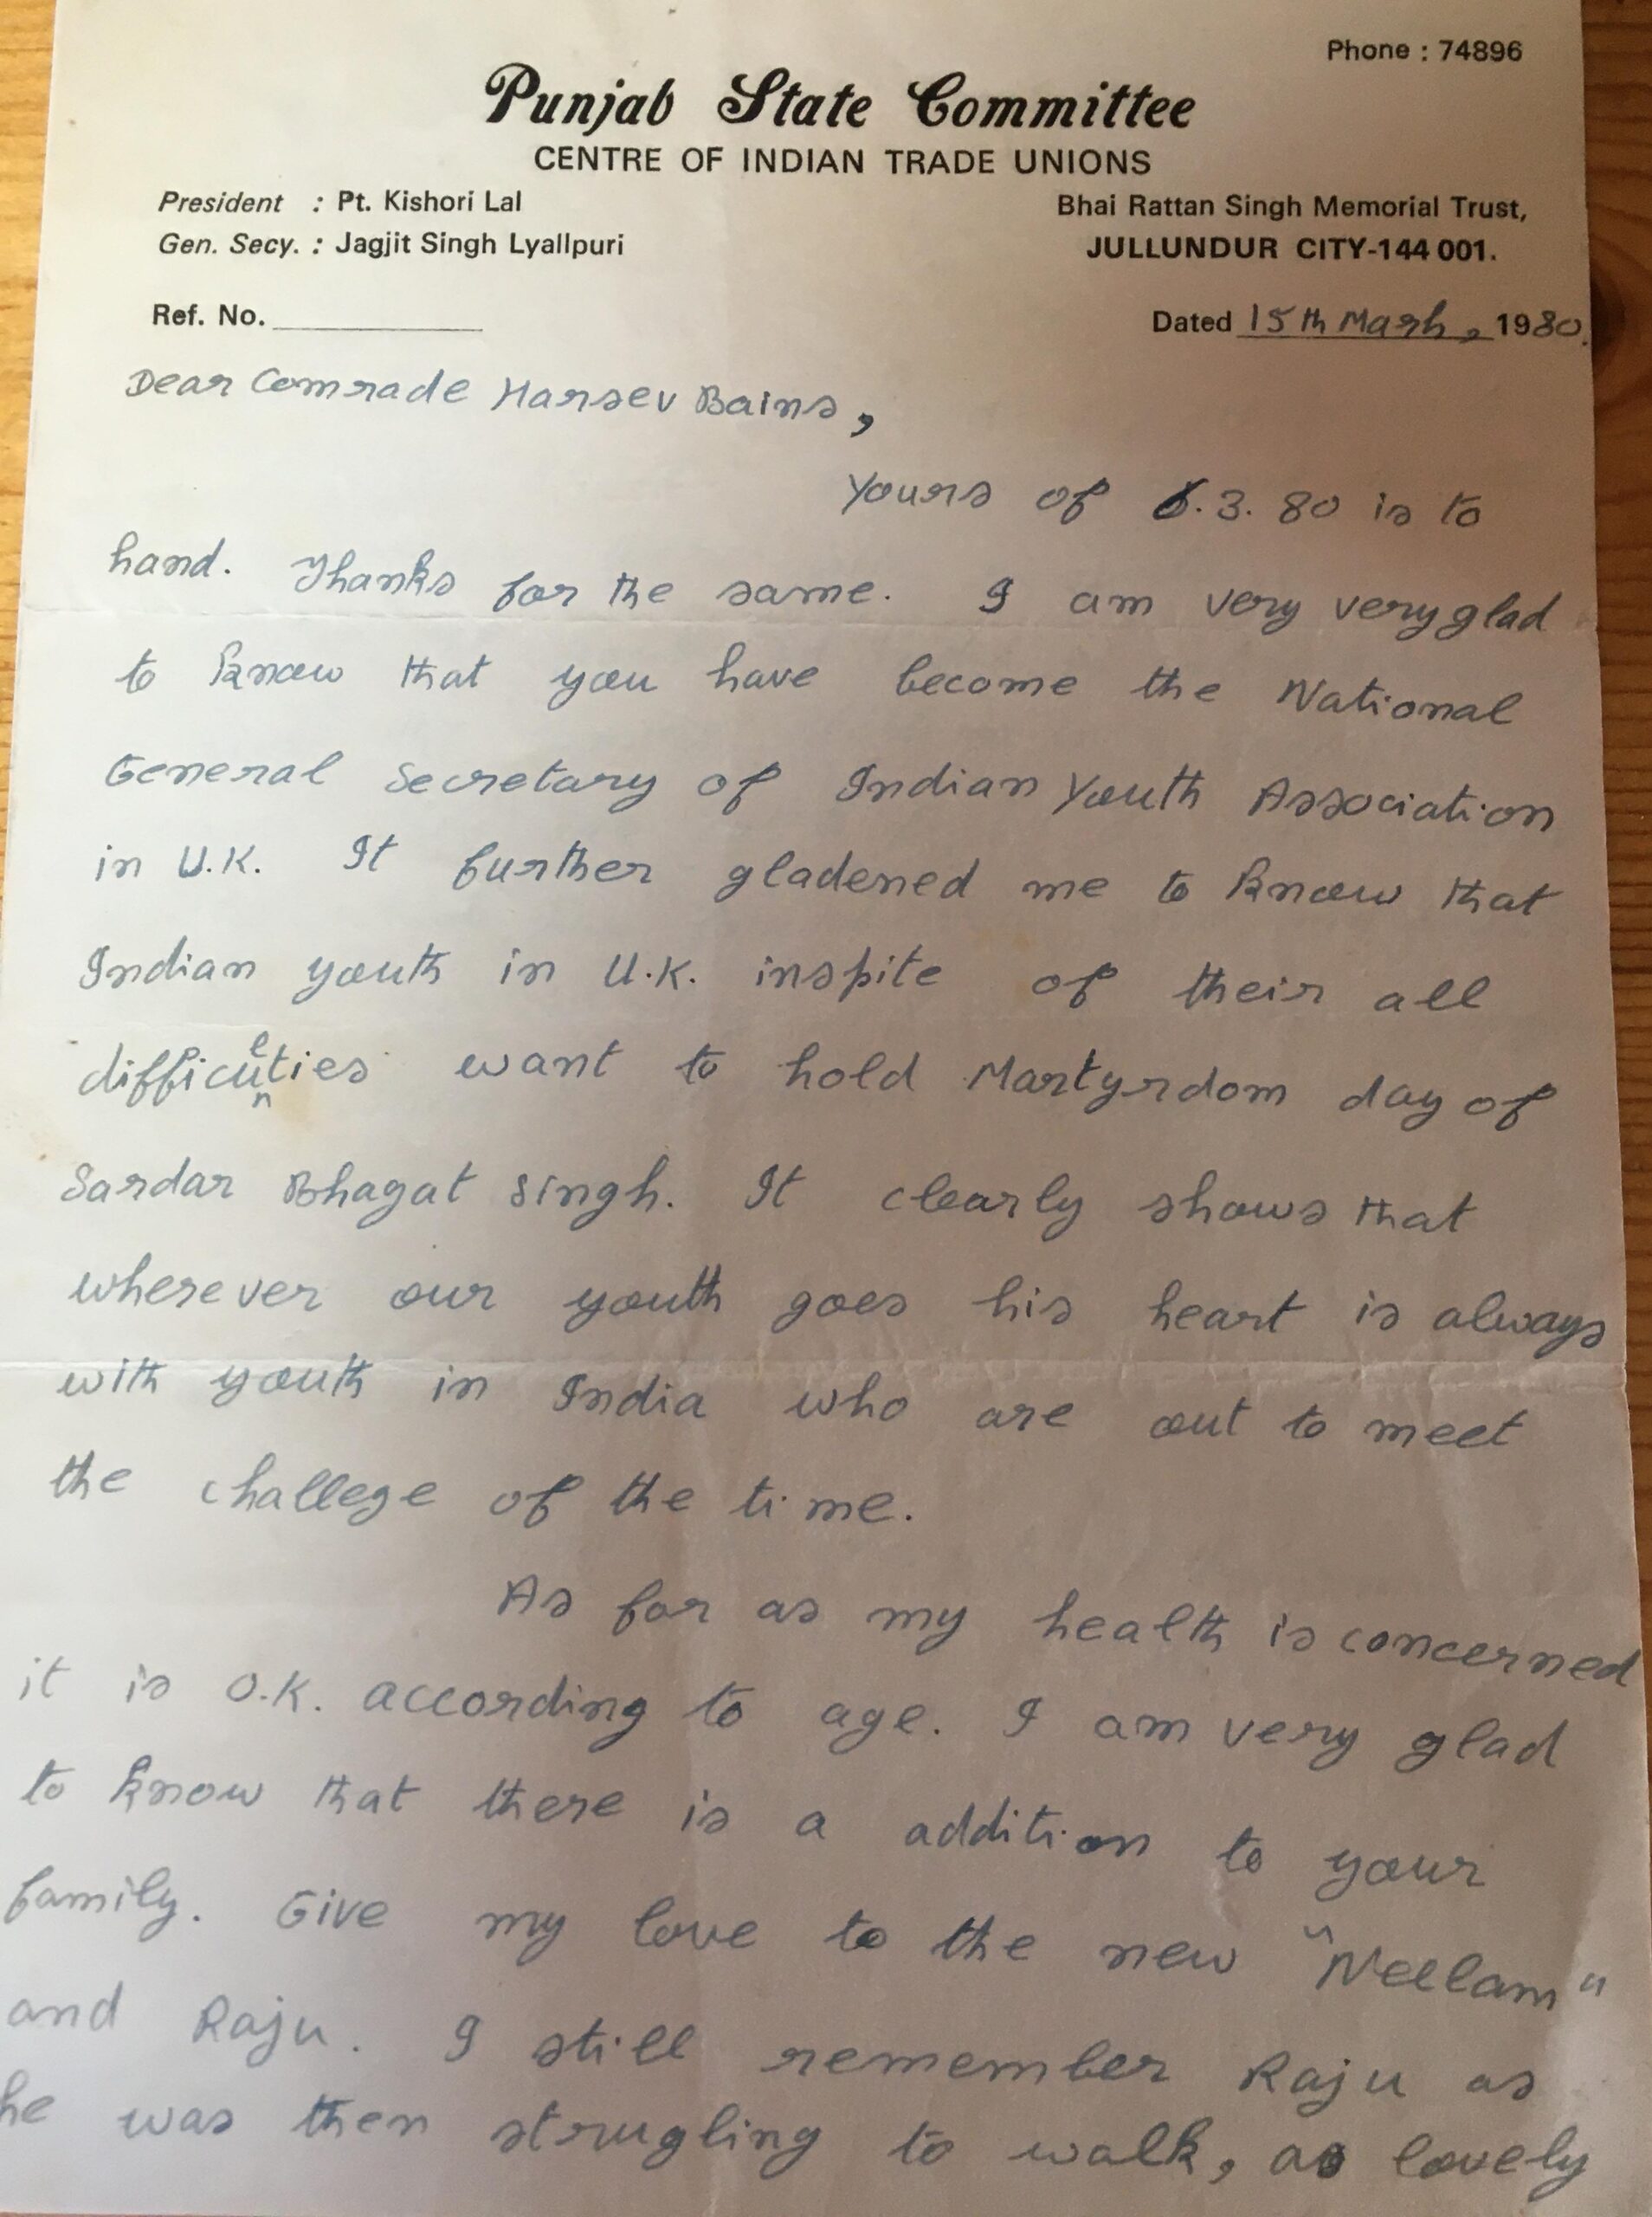 Phone : 74896
Punjab State Committee
CENTRE OF INDIAN TRADE UNIONS
President : Pt. Kishori Lal
Gen. Secy. : Jagjit Singh Lyallpuri
Bhai Rattan Singh Memorial Trust,
JULLUNDUR CITY-144 001.
Ref. No.
Dated 15th Marh, 1980.
Dear Comrade Harsev Bains,
Yours of 6.3.80 is to
hand. Thanks for the same. I am very very glad
to know that you have become the National
General Secretary of Indian Youth Association
in U.K. It further gladened me to know that
Indian youth in U.K. inspite of their all
difficulties want to hold Martyrdom day of
Sardar Bhagat Singh. It clearly shows that
wherever our youth goes his heart is always
with youth in India who are out to meet
the challege of the time.
As for as my health is concerned
it is O.K. according to age. I am very glad
to know that there is a addition to your
family. Give my love to the new "Neelam"
and Raju. I still remember Raju as
he was then strugling to walk, as lovely